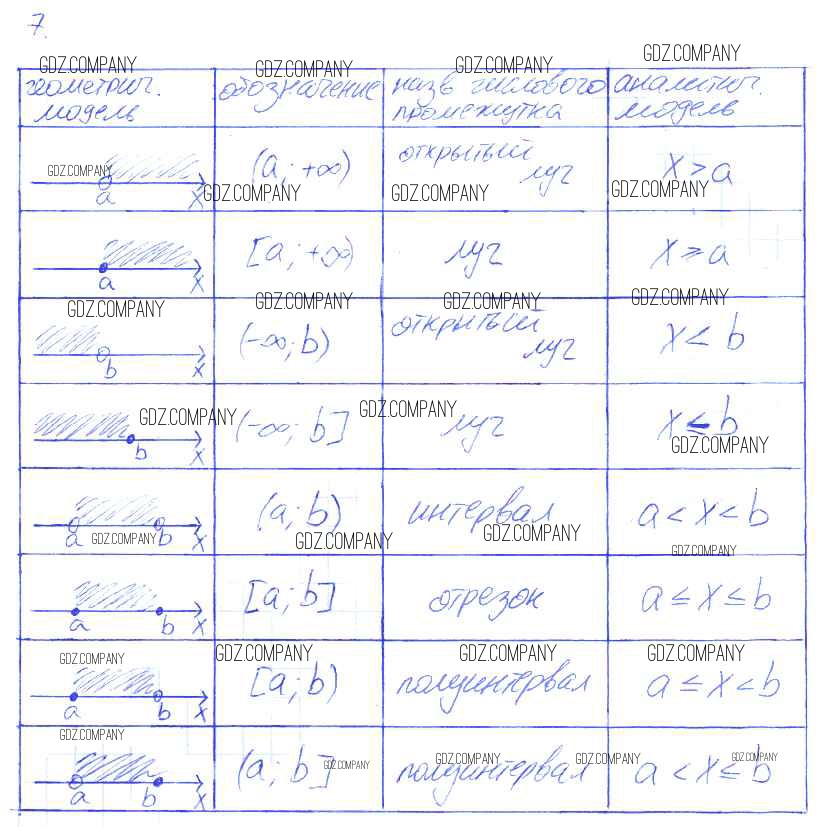 7.
GDZ.COMPANY GDZ.COMPANY GDZ.COMPANY GDZ.COMPANY
геометрич. модель обозначение назв числового промежутка аналитич. модель
GDZ.COMPANY a x (a; +∞) открытый луч x > a
GDZ.COMPANY GDZ.COMPANY GDZ.COMPANY
a x [a; +∞) луч x ≥ a
GDZ.COMPANY GDZ.COMPANY GDZ.COMPANY GDZ.COMPANY
b x (-∞; b) открытый луч x < b
GDZ.COMPANY GDZ.COMPANY
b x (-∞; b] луч x ≤ b
GDZ.COMPANY
a b x (a; b) интервал a < x < b
GDZ.COMPANY GDZ.COMPANY GDZ.COMPANY GDZ.COMPANY
a b x [a; b] отрезок a ≤ x ≤ b
GDZ.COMPANY GDZ.COMPANY GDZ.COMPANY GDZ.COMPANY
a b x [a; b) полуинтервал a ≤ x < b
GDZ.COMPANY
a b x (a; b] полуинтервал a < x ≤ b
GDZ.COMPANY GDZ.COMPANY GDZ.COMPANY GDZ.COMPANY